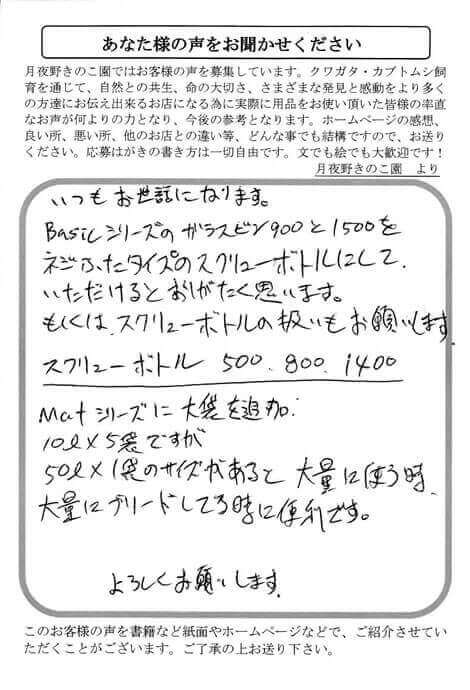 あなた様の声をお聞かせください
月夜野きのこ園ではお客様の声を募集しています。クワガタ・カブトムシ飼
育を通じて、自然との共生、命の大切さ、さまざまな発見と感動をより多く
の方達にお伝え出来るお店になる為に実際に用品をお使い頂いた皆様の率直
なお声が何よりの力となり、今後の参考となります。ホームページの感想、
良い所、悪い所、他のお店との違い等、どんな事でも結構ですので、お送り
ください。応募はがきの書き方は一切自由です。文でも絵でも大歓迎です！
月夜野きのこ園　より
いつもお世話になります。
Basicシリーズのガラスビン900と1500を
ネジふたタイプのスクリューボトルにして
いただけるとありがたく思います。
もしくは、スクリューボトルの扱いもお願いします
スクリューボトル 500、800、1400
Matシリーズに大袋を追加
10ℓ×5袋ですが
50ℓ×1袋のサイズがあると大量に使う時、
大量にブリードしてる時に便利です。
よろしくお願いします。
このお客様の声を書籍など紙面やホームページなどで、ご紹介させてい
ただくことがございます。ご了承の上お送り下さい。